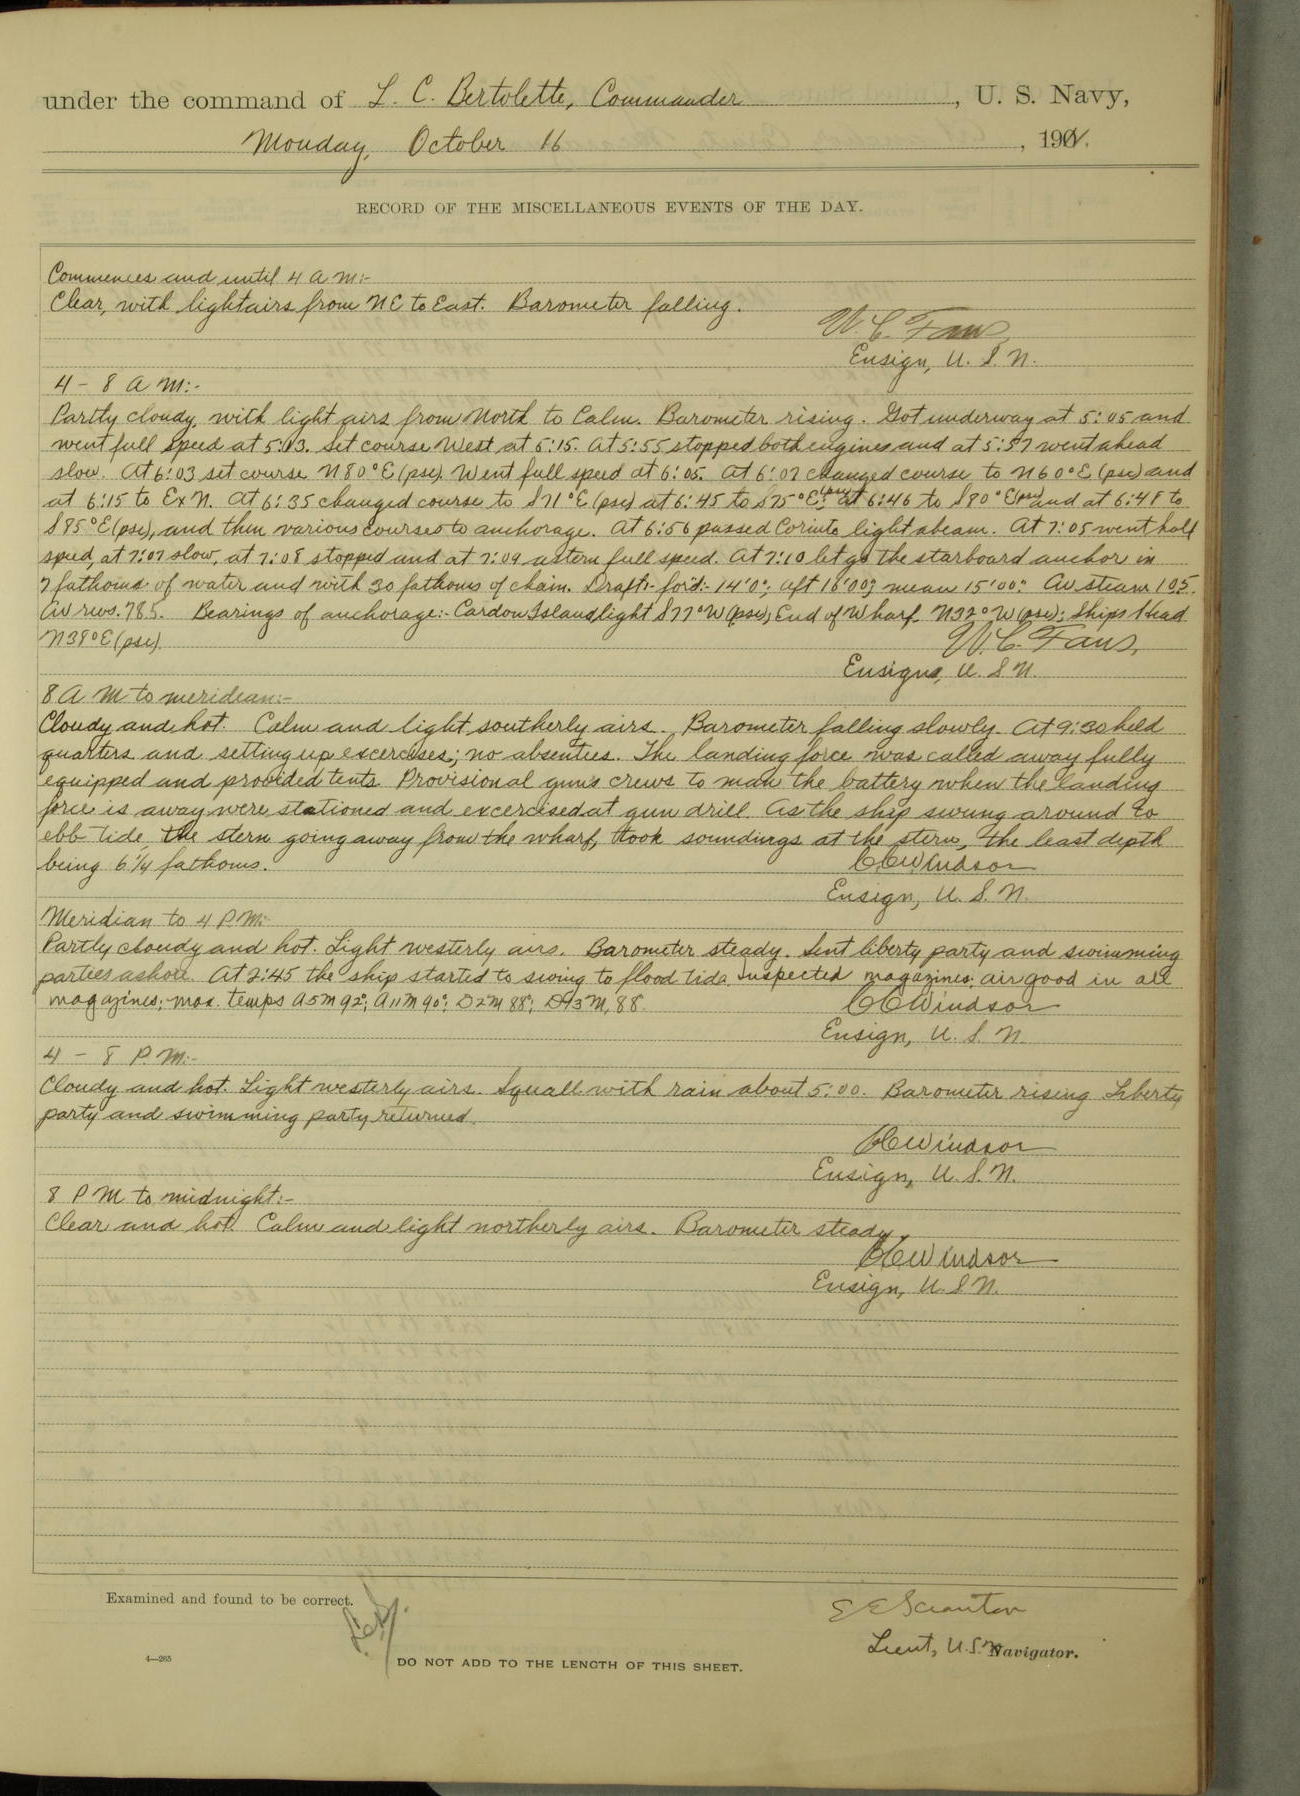 under the command of L. C. Bertolette, Commander, U. S. Navy,
Monday, October 16, 1911.
RECORD OF THE MISCELLANEOUS EVENTS OF THE DAY.
Commences and until 4 A M:-
Clear, with light airs from NE to East. Barometer falling.
W. C. Faus
Ensign, U. S. N.
4 - 8 A M:-
Partly cloudy, with light airs from North to Calm. Barometer rising. Got underway at 5:05 and
went full speed at 5:13. Set course West at 5:15. At 5:55 stopped both engines and at 5:57 went ahead
slow. At 6:03 set course N 80° E (psc). Went full speed at 6:05. At 6:07 changed course to N 60° E (psc) and
at 6:15 to ExN. At 6:35 changed course to S 71° E (psc) at 6:45 to S 75° E (psc) at 6:46 to S 80° E (psc) and at 6:48 to
S 85° E (psc), and then various courses to anchorage. At 6:56 passed Corinto light abeam. At 7:05 went half
speed, at 7:07 slow, at 7:08 stopped and at 7:09 astern full speed. At 7:10 let go the starboard anchor in
7 fathoms of water and with 30 fathoms of chain. Draft:- for'd:- 14'0"; aft 16'00"; mean 15'00". Av steam 105.
Av revs. 78.5. Bearings of anchorage:- Cardon Island light S 77° W (psc); End of Wharf N 32° W (psc); Ships head
N 38° E (psc).
W. C. Faus,
Ensign, U. S N.
8 A M to meridian:-
Cloudy and hot. Calm and light southerly airs. Barometer falling slowly. At 9:30 held
quarters and setting up excercises; no absentees. The landing force was called away fully
equipped and provided tents. Provisional gun's crews to man the battery when the landing
force is away were stationed and excercised at gun drill. As the ship swung around to
ebb tide, the stern going away from the wharf, took soundings at the stern, the least depth
being 6 1/4 fathoms.
CCWindsor
Ensign, U. S. N.
Meridian to 4 P.M:-
Partly cloudy and hot. Light westerly airs. Barometer steady. Sent liberty party and swimming
parties ashore. At 2:45 the ship started to swing to flood tide. Inspected magazines; air good in all
magazines; max. temps A5M 92°; A11M 90°; D2M 88°; D13M, 88.
CCWindsor
Ensign, U. S. N.
4 - 8 P. M:-
Cloudy and hot. Light westerly airs. Squall with rain about 5:00. Barometer rising. Liberty
party and swimming party returned.
CCWindsor
Ensign, U. S. N.
8 P M to midnight:-
Clear and hot. Calm and light northerly airs. Barometer steady.
CCWindsor
Ensign, U. S N.
Examined and found to be correct.
E E Scranton
Lieut, U.S.N. Navigator.
4—265
DO NOT ADD TO THE LENGTH OF THIS SHEET.